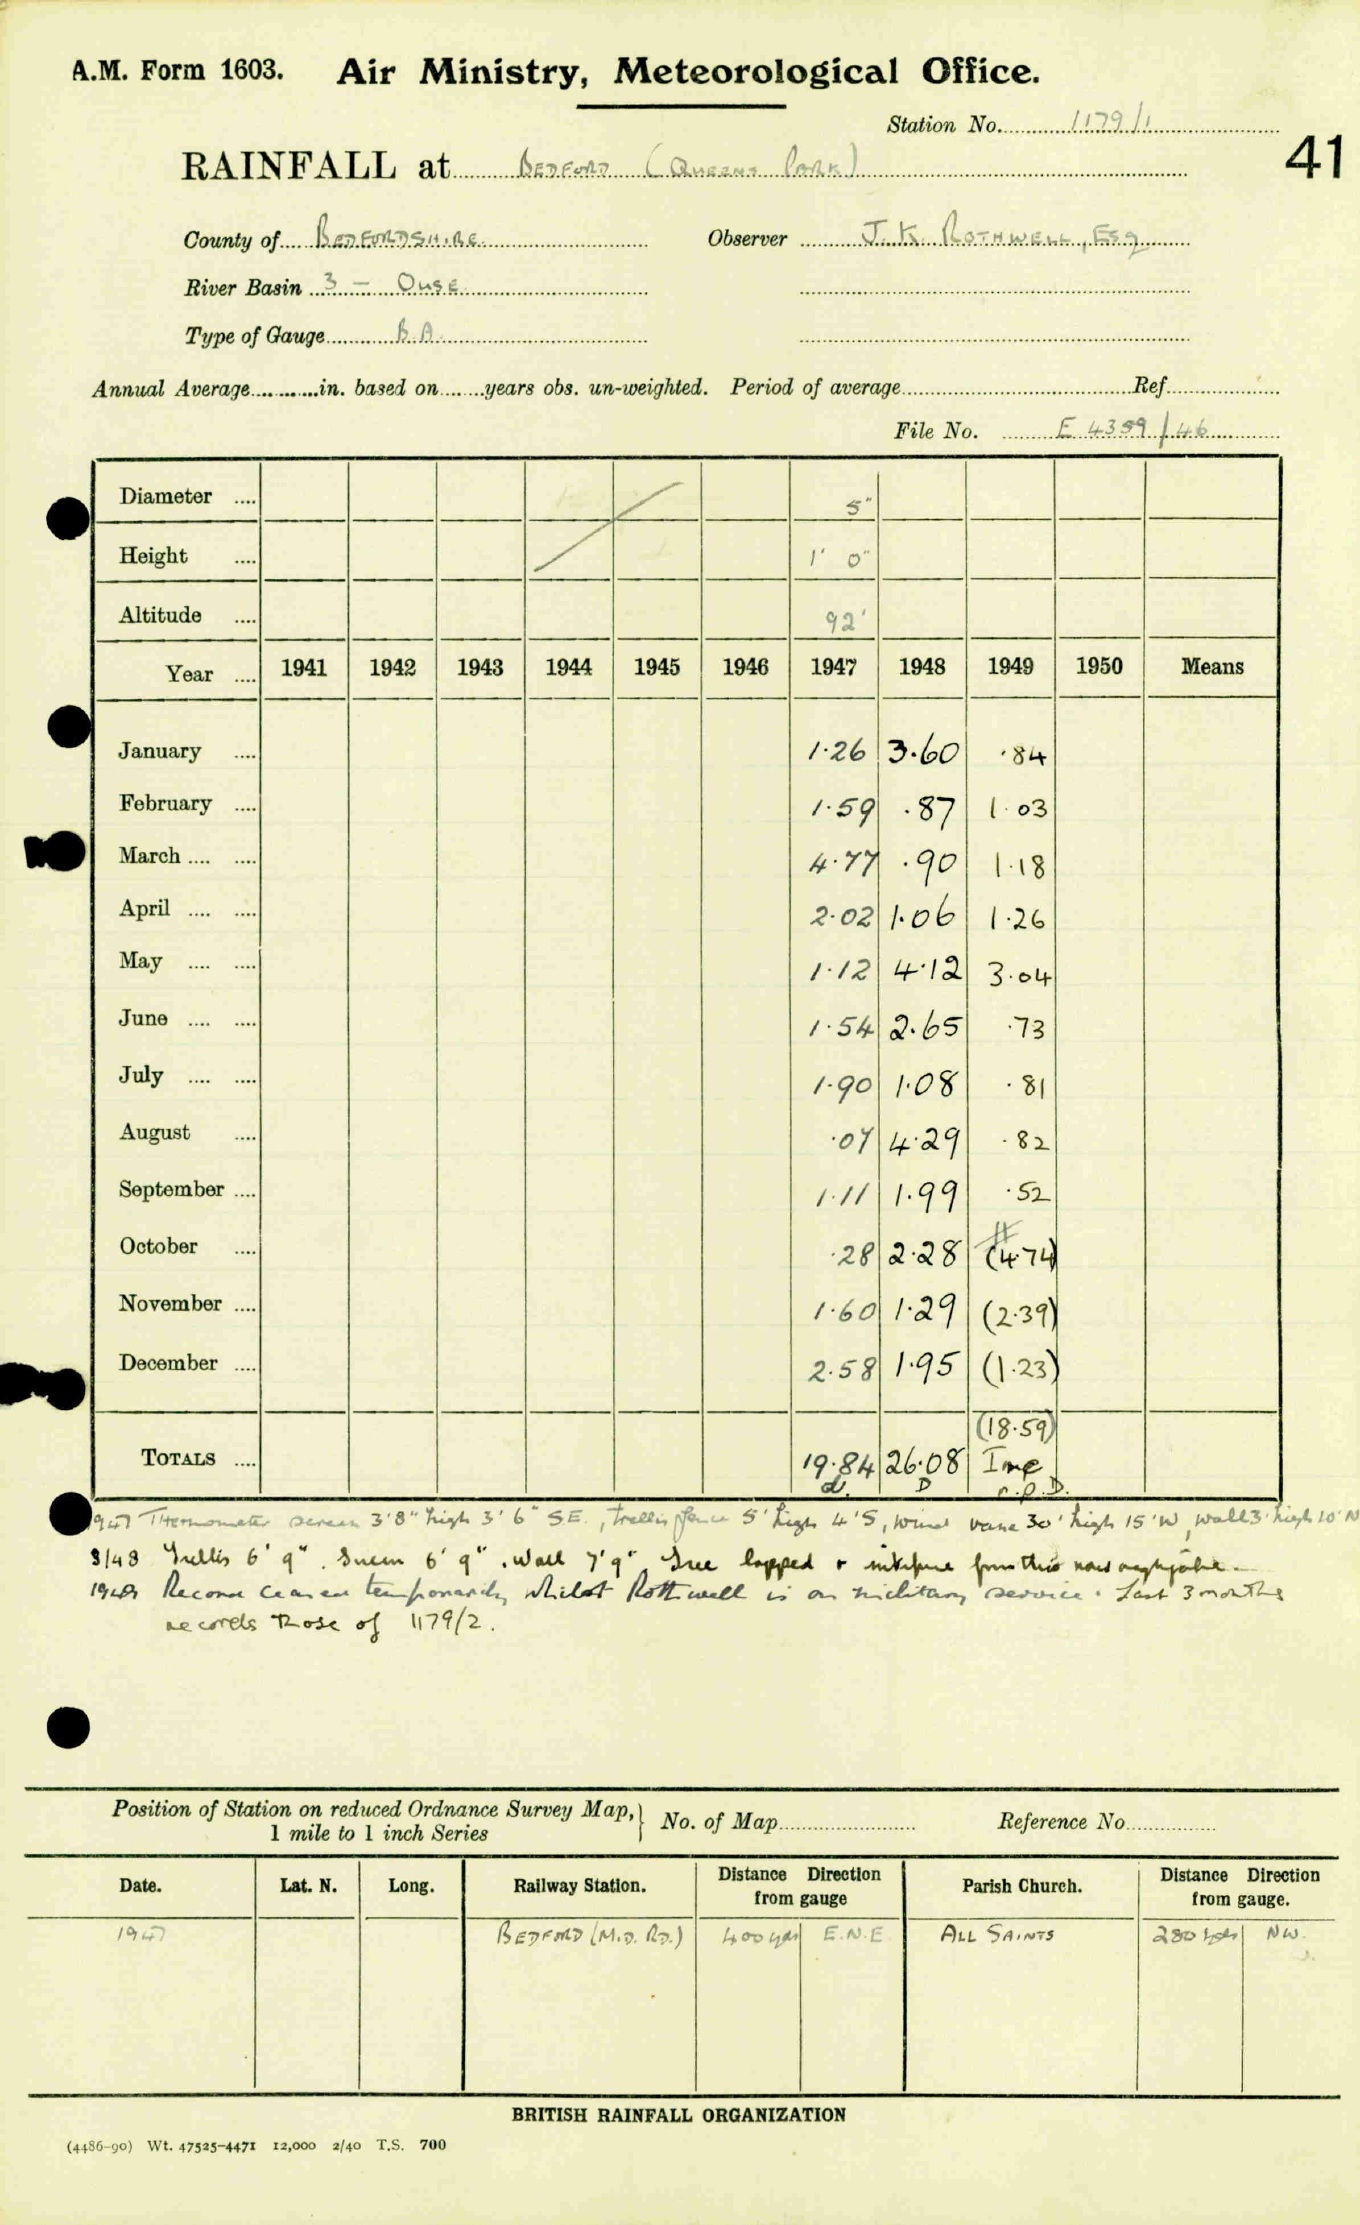 A.M. Form 1603. Air Ministry, Meteorological Office.
Station No. 1179/1
41
RAINFALL at BEDFORD (QUEENS PARK)
County of BEDFORDSHIRE Observer J. K. ROTHWELL, ESQ
River Basin 3 - OUSE
Type of Gauge B.A.
Annual Average in. based on years obs. un-weighted. Period of average Ref
File No. E 4359/46
Diameter 5"
Height 1' 0"
Altitude 92'
Year 1941 1942 1943 1944 1945 1946 1947 1948 1949 1950 Means
January 1.26 3.60 .84
February 1.59 .87 1.03
March 4.77 .90 1.18
April 2.02 1.06 1.26
May 1.12 4.12 3.04
June 1.54 2.65 .73
July 1.90 1.08 .81
August .07 4.29 .82
September 1.11 1.99 .52
October .28 2.28 (4.74)
November 1.60 1.29 (2.39)
December 2.58 1.95 (1.23)
(18.59)
TOTALS 19.84 26.08 Inc
d. D r.p.D.
1947 Thermometer screen 3'8" high 3'6" S.E., trellis fence 5' high 4'S, wind vane 30' high 15'W, wall 3' high 10'N
3/48 Trellis 6'9". Screen 6'9". Wall 7'9" Tree lopped & from this now negligible.
1949 Record ceased temporarily whilst Rothwell is on military service. Last 3 months
records those of 1179/2.
Position of Station on reduced Ordnance Survey Map, 1 mile to 1 inch Series No. of Map Reference No.
Date. Lat. N. Long. Railway Station. Distance Direction from gauge Parish Church. Distance Direction from gauge.
1947 BEDFORD (M.D. RD.) 400 yds E.N.E ALL SAINTS 280 yds NW.
BRITISH RAINFALL ORGANIZATION
(4486-90) Wt. 47525-4471 12,000 2/40 T.S. 700